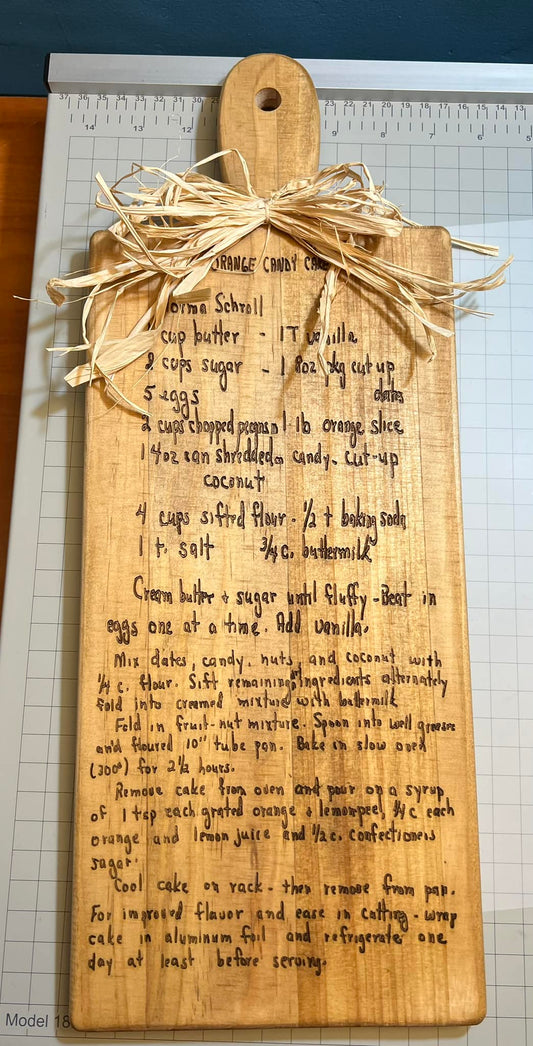 37 36 35 34 33 32 31 30 29 23 22 21 20 19 18 17 16
14 13 12 9 8 7 6 5
ORANGE CANDY CAKE
Norma Schroll
cup butter - 1 T vanilla
2 cups sugar - 1 8oz pkg cut up
5 eggs dates
2 cups chopped pecans 1-lb orange slice
1 4oz can shredded candy. cut-up
coconut
4 cups sifted flour - 1/2 t baking soda
1 t. salt 3/4 c. buttermilk
Cream butter & sugar until fluffy - Beat in
eggs one at a time. Add vanilla.
Mix dates, candy, nuts, and coconut with
1/4 c. flour. Sift remaining ingredients alternately
fold into creamed mixture with buttermilk
Fold in fruit-nut mixture. Spoon into well greased
and floured 10" tube pan. Bake in slow oven
(300°) for 2 1/2 hours.
Remove cake from oven and pour on a syrup
of 1 tsp each grated orange & lemon peel, 1/4 c each
orange and lemon juice and 1/2 c. confectioners
sugar.
Cool cake on rack - then remove from pan.
For improved flavor and ease in cutting - wrap
cake in aluminum foil and refrigerate one
day at least before serving.
Model 18